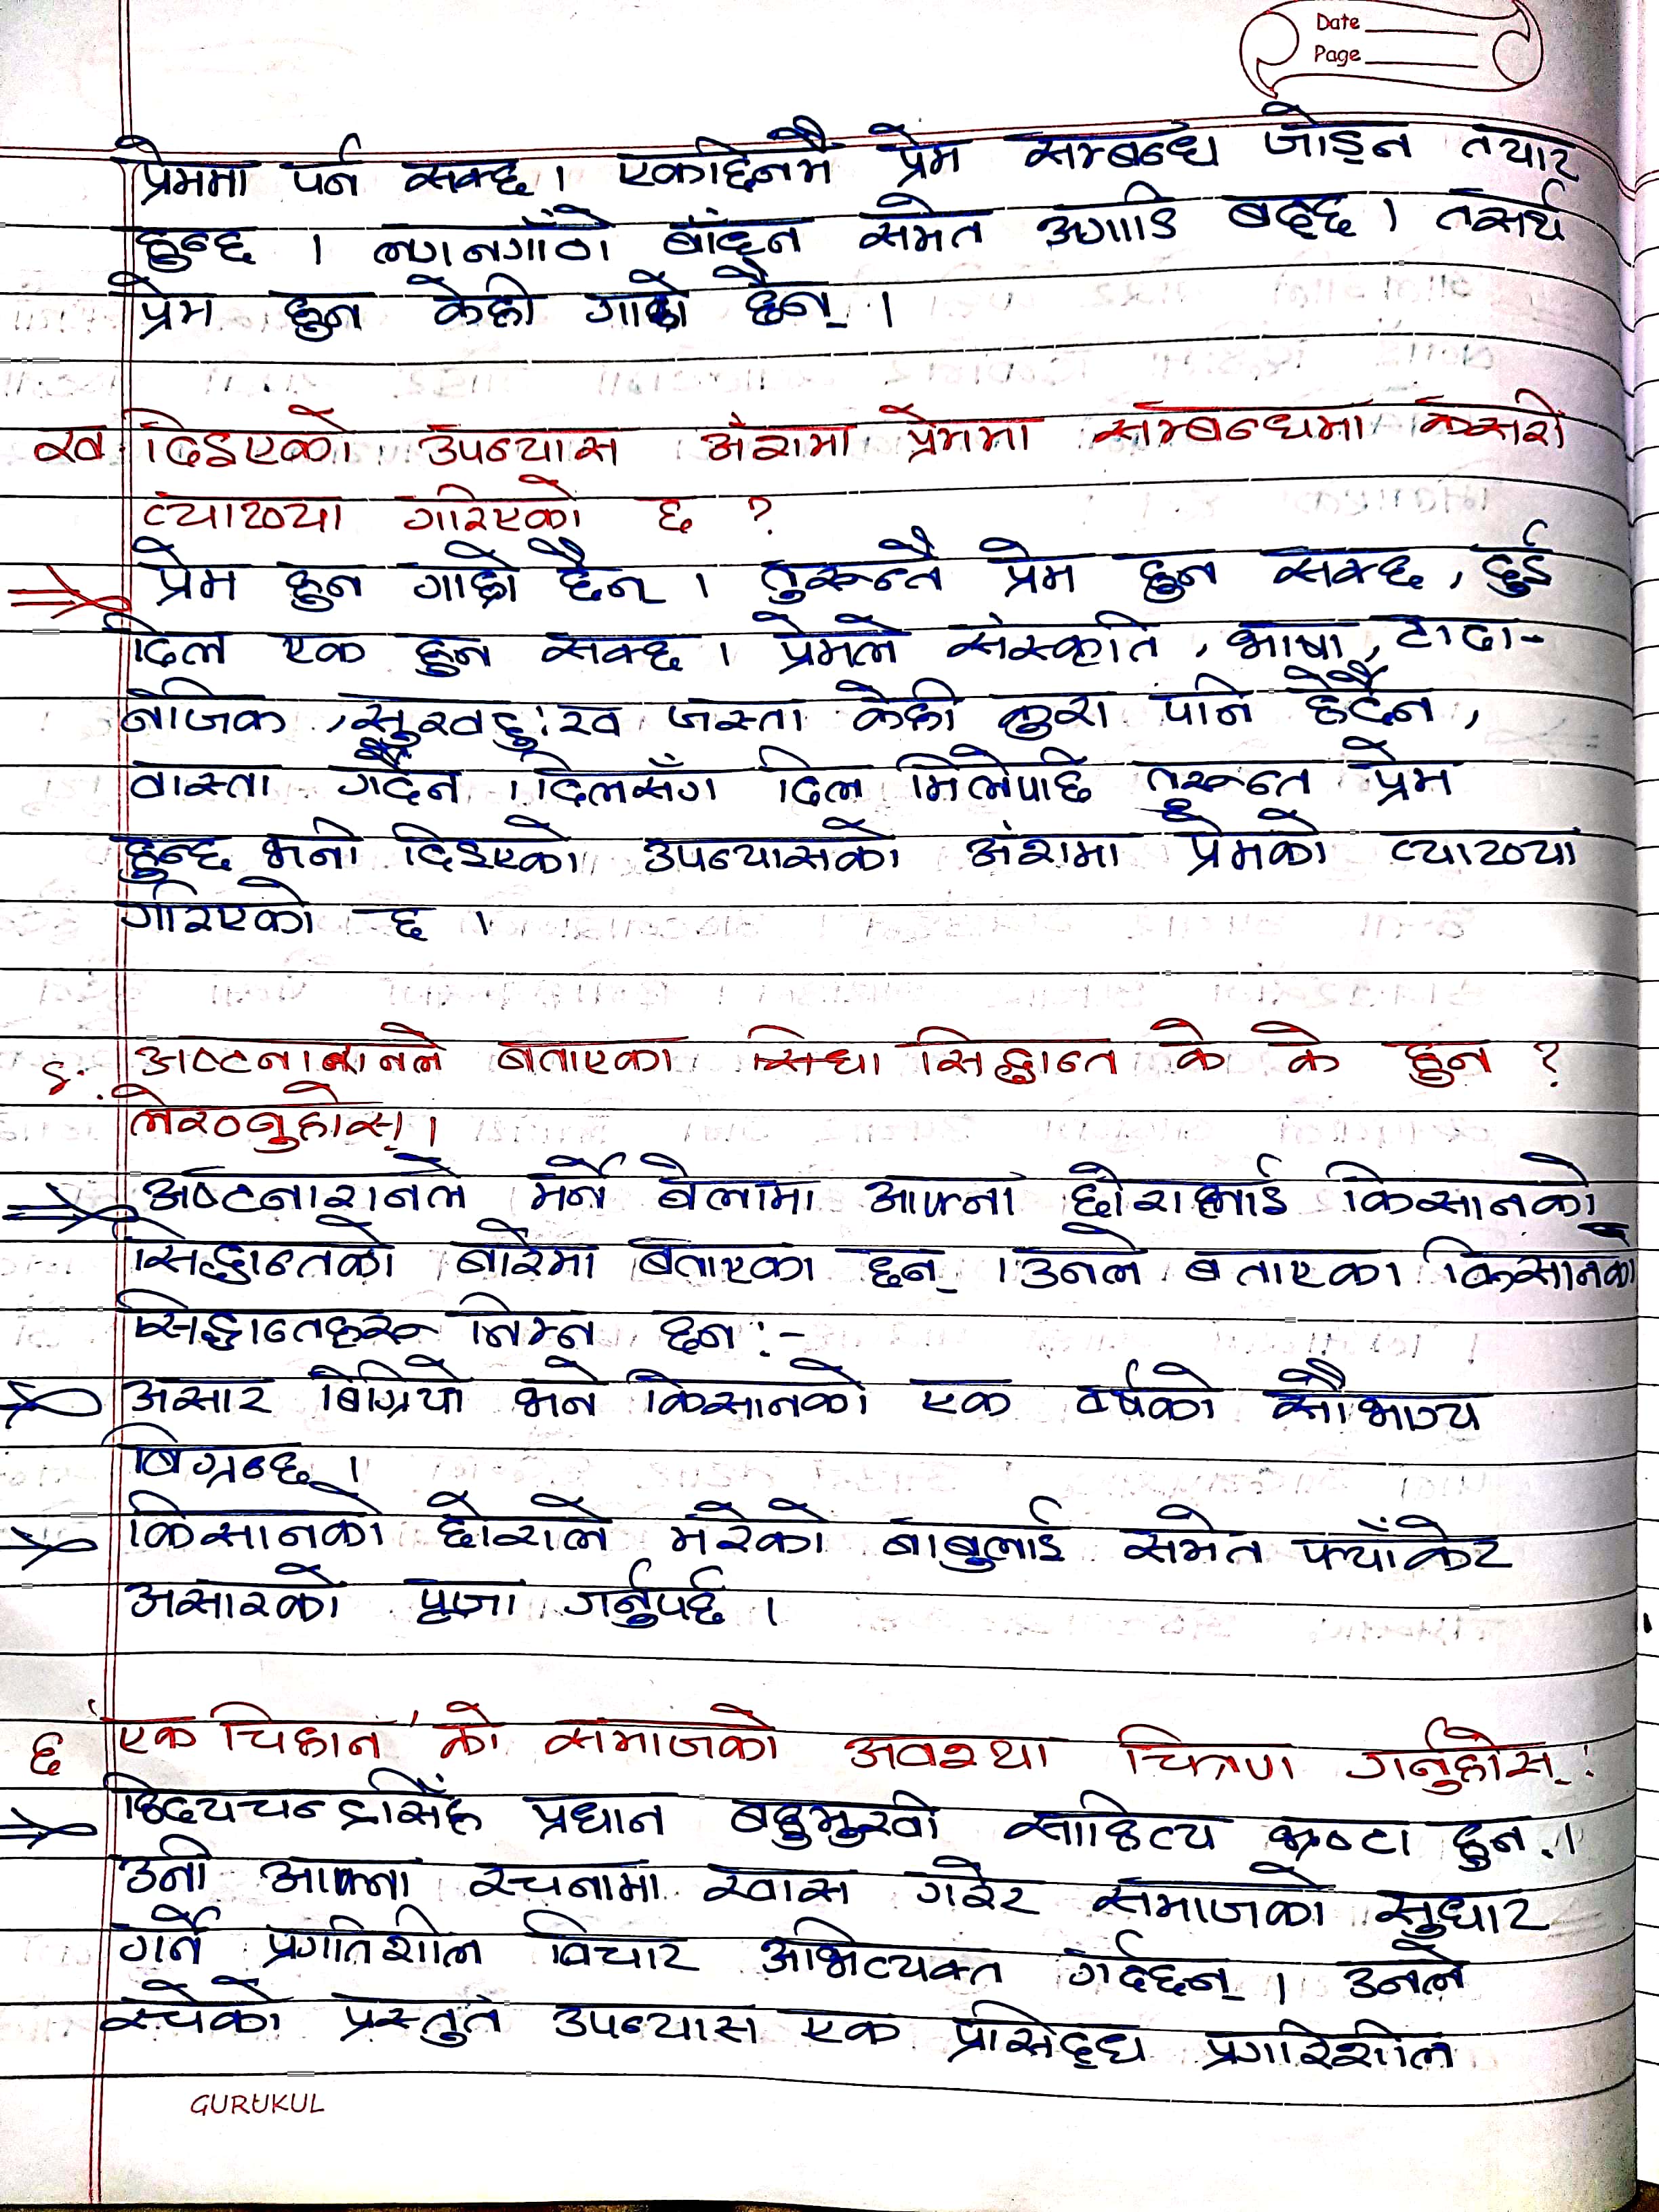 Date
Page
प्रेममा पर्न सक्छ । एकदिनमै प्रेम सम्बन्ध जोड्न तयार
हुन्छ । लगनगाँठो बाँध्न समेत अगाडि बढ्छ । तसर्थ
प्रेम हुन केही गाह्रो हैन् ।
ख दिइएको उपन्यास अंशमा प्रेममा सम्बन्धमा कसरी
व्याख्या गरिएको छ ?
प्रेम हुन गाह्रो हैन् । तुरून्तै प्रेम हुन सक्छ, दुई
दिल एक हुन सक्छ । प्रेमले संस्कृति, भाषा, टाढा-
नजिक, सुखदुःख जस्ता केही कुरा पनि हेर्दैन,
वास्ता गर्दैन । दिलसँग दिल मिलेपछि तुरून्त प्रेम
हुन्छ भनी दिइएको उपन्यासको अंशमा प्रेमको व्याख्या
गरिएको छ ।
५. अष्टनारानले बताएका सिधा सिद्धान्त के के हुन ?
लेख्नुहोस् ।
अष्टनारानले मर्ने बेलामा आफ्ना छोरालाई किसानको
सिद्धान्तको बारेमा बताएका छन् । उनले बताएका किसानको
सिद्धान्तहरू निम्न छन :-
असार बिग्रियो भने किसानको एक वर्षको सौभाग्य
बिग्रन्छ ।
किसानको छोराले मरेको बाबुलाई समेत फ्याँकेर
असारको पूजा गर्नुपर्छ ।
६ 'एक चिहान' को समाजको अवस्था चित्रण गर्नुहोस् :
हृदयचन्द्रसिंह प्रधान बहुमुखी साहित्य स्रष्टा हुन् ।
उनी आफ्ना रचनामा खास गरेर समाजको सुधार
गर्ने प्रगतिशील विचार अभिव्यक्त गर्दछन् । उनले
रचेको प्रस्तुत उपन्यास एक प्रसिद्ध प्रगारिशील
GURUKUL